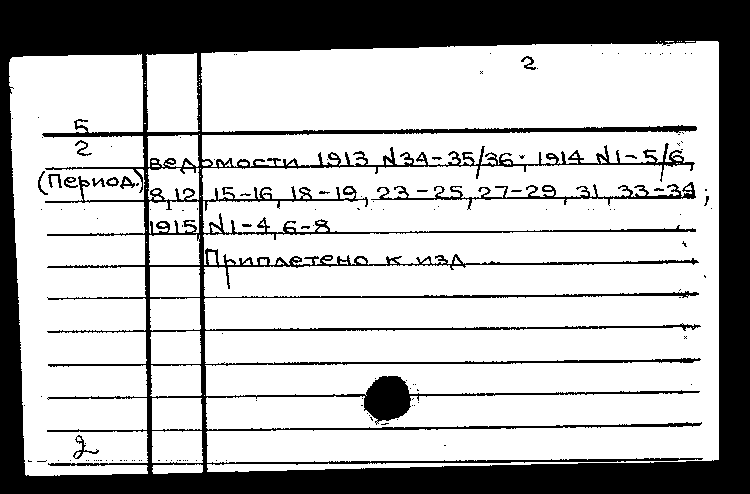 2
5
2
(Период.)
ведомости 1913, N34-35/36; 1914 N1-5/6,
8, 12, 15-16, 18-19, 23-25, 27-29, 31, 33-34;
1915, N1-4, 6-8
Приплетено к изд
2